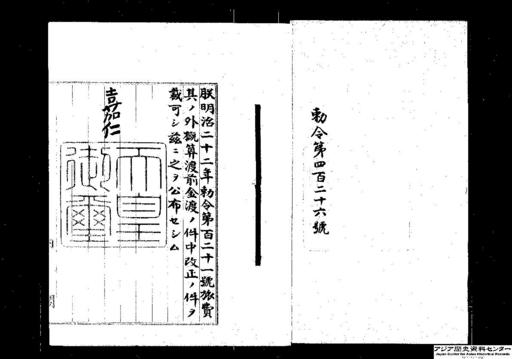 勅令第四百二十六號
朕明治二十二年勅令第百二十一號旅費
其ノ外概算渡前金渡ノ件中改正ノ件ヲ
裁可シ茲ニ之ヲ公布セシム
嘉仁
天皇
御璽
内閣
アジア歴史資料センター
Japan Center for Asian Historical Records